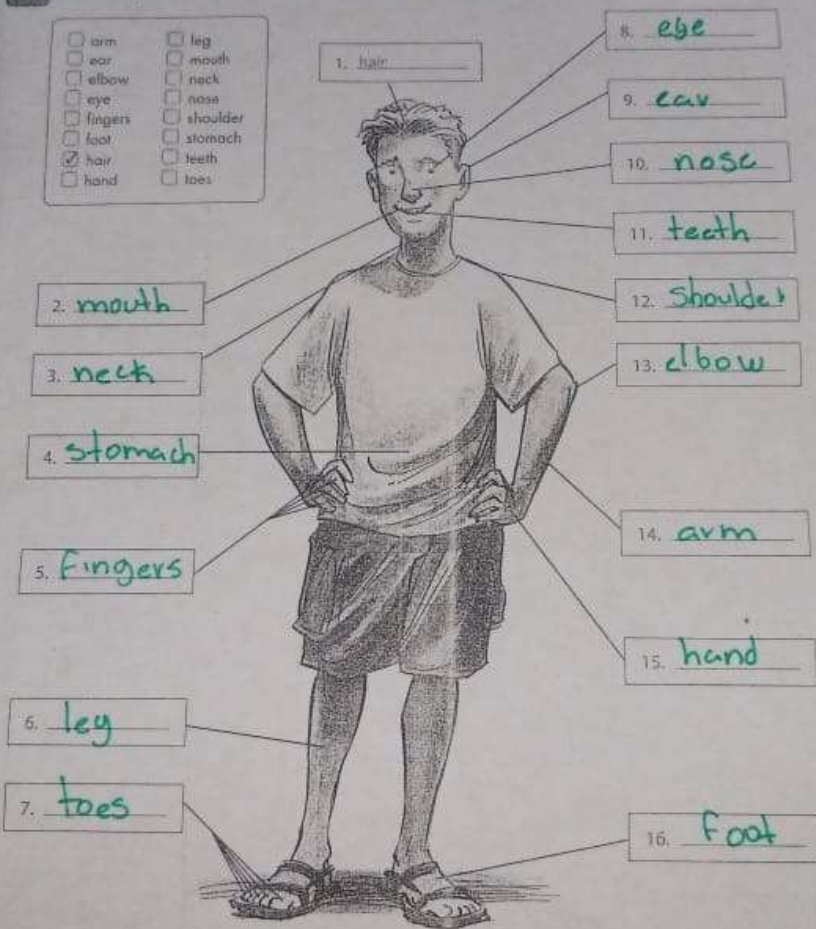 arm
ear
elbow
eye
fingers
foot
hair
hand
leg
mouth
neck
nose
shoulder
stomach
teeth
toes
1. hair
2. mouth
3. neck
4. stomach
5. Fingers
6. leg
7. toes
8. eye
9. ear
10. nose
11. teeth
12. Shoulder
13. elbow
14. arm
15. hand
16. Foot